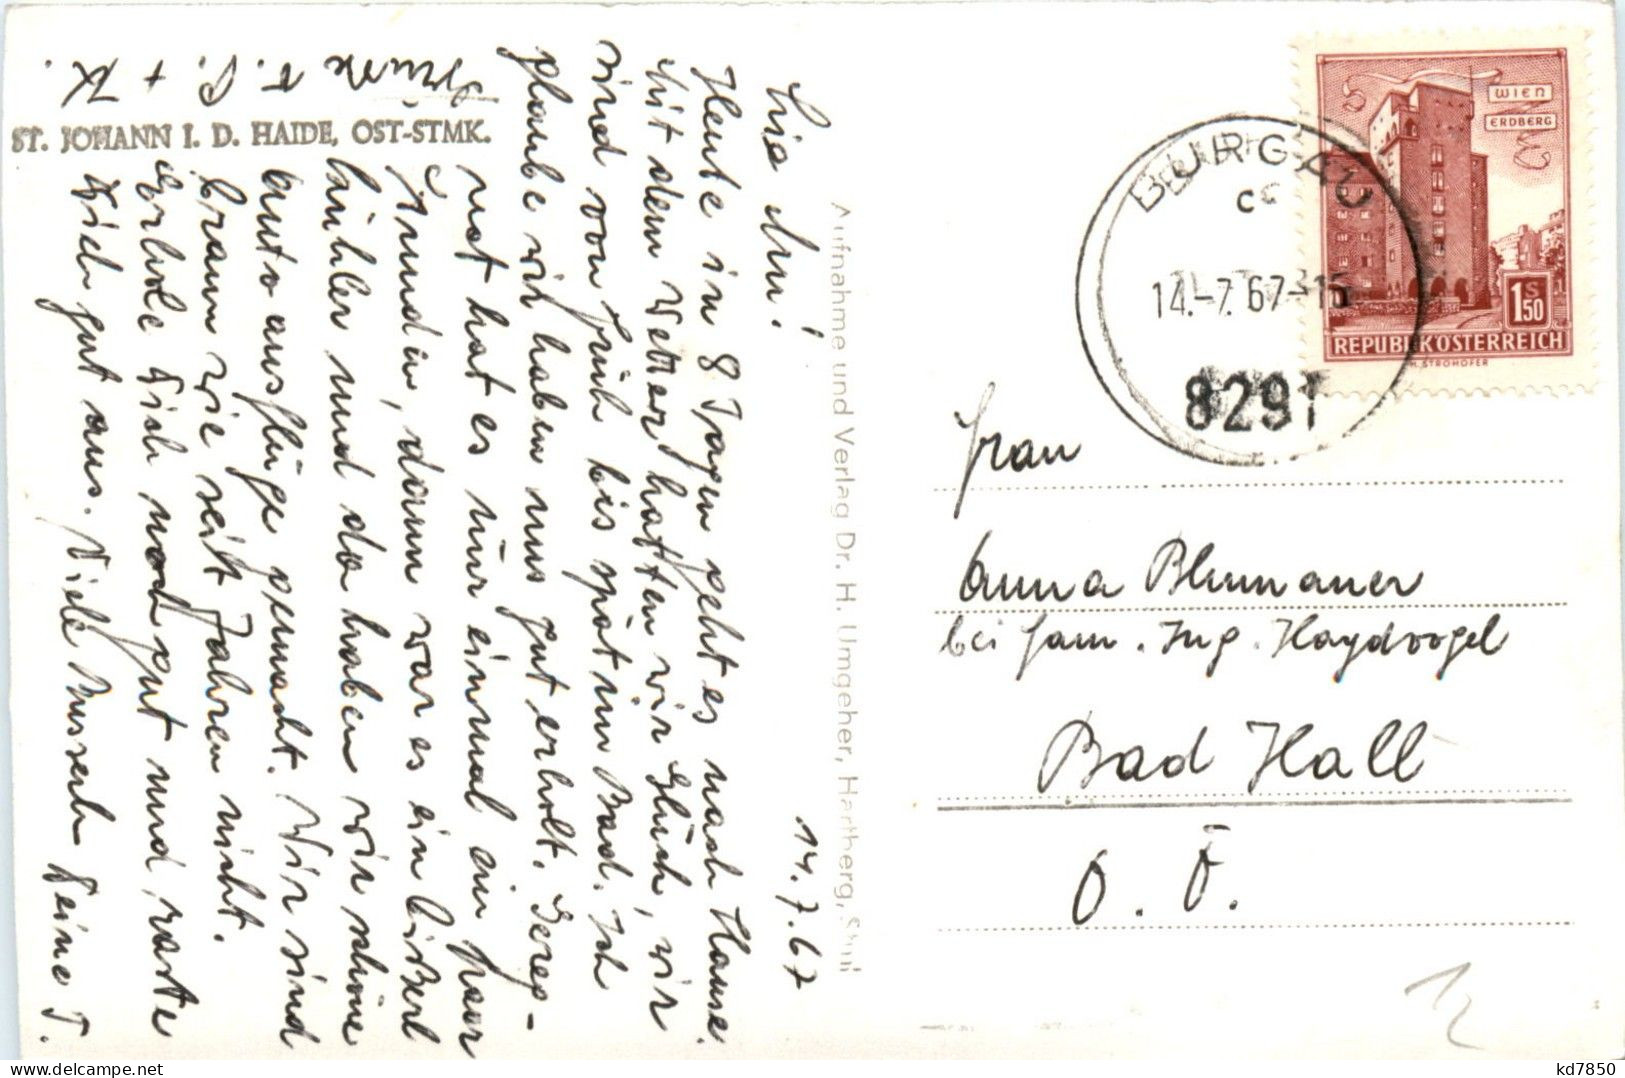 14.7.67
Lia Ani!
Heute in 8 Tagen geht es nach Hause
Mit dem Wetter hatten wir Glück, wir
sind von früh bis spät im Bad. Ich
glaube wir haben uns gut erholt. Gereg-
net hat es nur einmal ein paar
Stunden, dann war es ein bißerl
kühler und da haben wir schöne
Autoausflüge gemacht. Wir sind
braun wie seit Jahren nicht.
Erhole Dich noch gut und raste
Dich gut aus. Viele Busserln Deine T.
ST. JOHANN I. D. HAIDE, OST-STMK.
Aufnahme und Verlag Dr. H. Umgeher, Hartberg, Stmk
WIEN
ERDBERG
1 S 50
REPUBLIK ÖSTERREICH
H. STROHOFER
BURGAU
14.-7.67-15
8291
Frau
Anna Blumauer
bei Fam. Ing. Haydvogel
Bad Hall
O. Ö.
kd7850